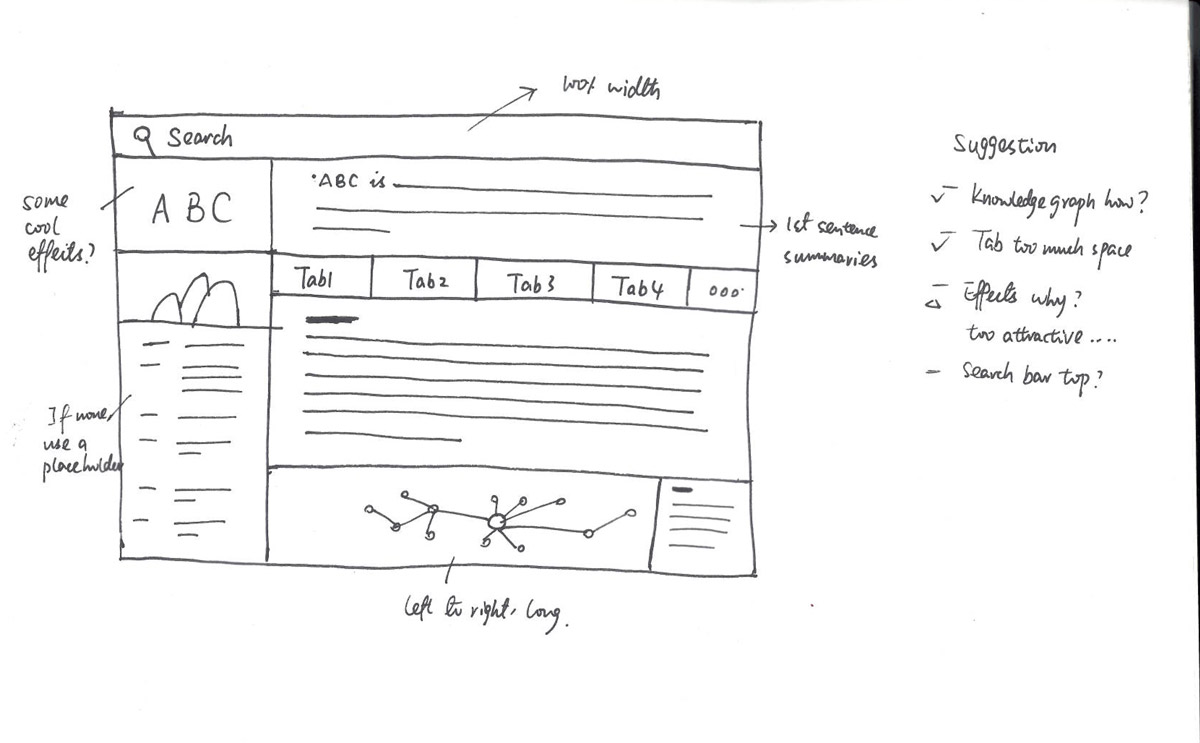 100% width
Search
ABC
some
cool
effects?
·ABC is
1st sentence
summaries
Tab1 Tab2 Tab3 Tab4 ooo
If none,
use a
placeholder
left to right, long.
Suggestion
✓ Knowledge graph how?
✓ Tab too much space
Effects why?
too attractive ....
- Search bar top?